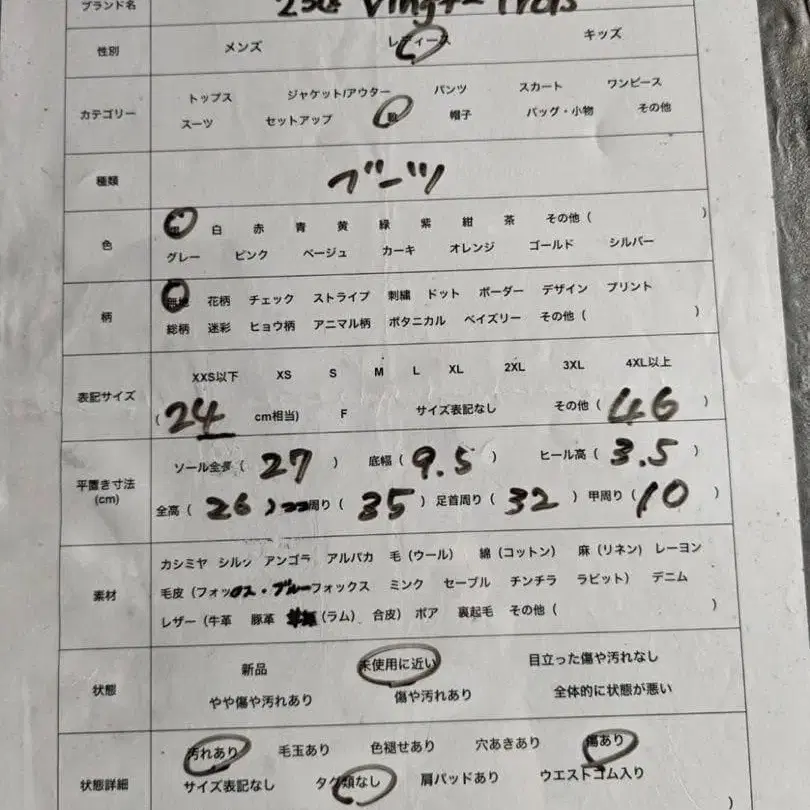 ブランド名 Vingt-Trois
性別 メンズ レディース キッズ
カテゴリー トップス ジャケット/アウター パンツ スカート ワンピース
スーツ セットアップ 靴 帽子 バッグ・小物 その他
種類 ブーツ
色 白 赤 青 黄 緑 紫 紺 茶 その他 ( )
グレー ピンク ベージュ カーキ オレンジ ゴールド シルバー
柄 無地 花柄 チェック ストライプ 刺繍 ドット ボーダー デザイン プリント
総柄 迷彩 ヒョウ柄 アニマル柄 ボタニカル ペイズリー その他 ( )
表記サイズ XXS以下 XS S M L XL 2XL 3XL 4XL以上
( 24 cm相当) F サイズ表記なし その他 ( 46 )
平置き寸法 (cm) ソール全長 ( 27 ) 底幅 ( 9.5 ) ヒール高 ( 3.5 )
全高 ( 26 ) 周り ( 35 ) 足首周り ( 32 ) 甲周り ( 10 )
素材 カシミヤ シルク アンゴラ アルパカ 毛 (ウール) 綿 (コットン) 麻 (リネン) レーヨン
毛皮 (フォックス・ブルーフォックス ミンク セーブル チンチラ ラビット) デニム
レザー (牛革 豚革 (ラム) 合皮) ボア 裏起毛 その他 ( )
状態 新品 未使用に近い 目立った傷や汚れなし
やや傷や汚れあり 傷や汚れあり 全体的に状態が悪い
状態詳細 汚れあり 毛玉あり 色褪せあり 穴あきあり 傷あり
サイズ表記なし タグ類なし 肩パッドあり ウエストゴム入り
)